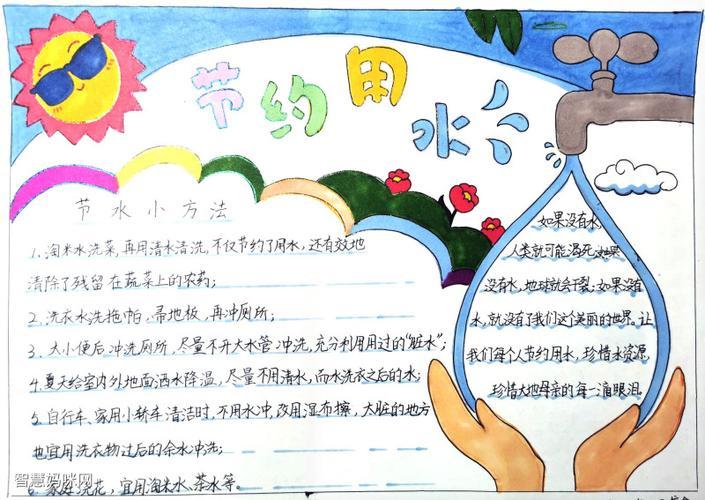 节约用水
节水小方法
1、淘米水洗菜,再用清水清洗,不仅节约了用水,还有效地
清除了残留在蔬菜上的农药;
2、洗衣水洗拖帕、帚地板,再冲厕所;
3、大小便后冲洗厕所,尽量不开大水管冲洗,充分利用用过的“脏水”;
4、夏天给室内外地面洒水降温,尽量不用清水,而水洗衣之后的水;
5、自行车、家用小轿车清洁时,不用水冲,改用湿布擦,大脏的地方
也宜用洗衣物过后的余水冲洗;
6、家庭浇花,宜用淘米水、茶水等。
如果没有水,
人类就可能渴死;如果
没有水,地球就会干裂;如果没有
水,就没有了我们这个美丽的世界。让
我们每个人节约用水,珍惜水资源,
珍惜大地母亲的每一滴眼泪。
智慧妈咪网